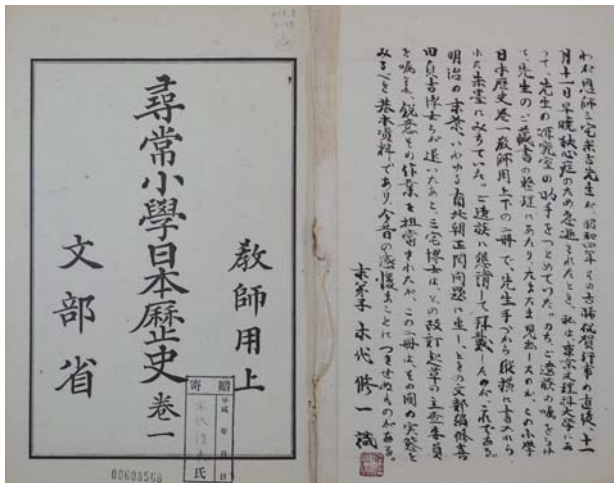 わが恩師三宅米吉先生が、昭和四年その古稀祝賀行事の直後、十一
月十一日早暁狭心症のため急逝されたとき、私は東京文理科大学にあ
って、先生の研究室の助手をつとめていた。のち、ご遺族の嘱をうけ
て、先生のご蔵書の整理にあたり、たまたま見出したのが、この小学
日本歴史巻一教師用上下の二冊で、先生手づから縦横に書き入れら
れた朱墨にみちていた。ご遺族に懇請して拝戴したのが、これである。
明治の末葉、いわゆる南北朝正閏問題に坐し、ときの文部編修喜
田貞吉博士らが退いたあと、三宅博士は、その改訂起草の主査委員
を嘱され、鋭意その作業を担当されたが、この二冊は、その間の実態を
みるべき基本資料であり、今昔の感慨まことにつきせぬものがある。
末弟子 木代修一 識
教師用上
尋常小學日本歷史 卷一
文部省
寄贈
平成 年 月 日
氏